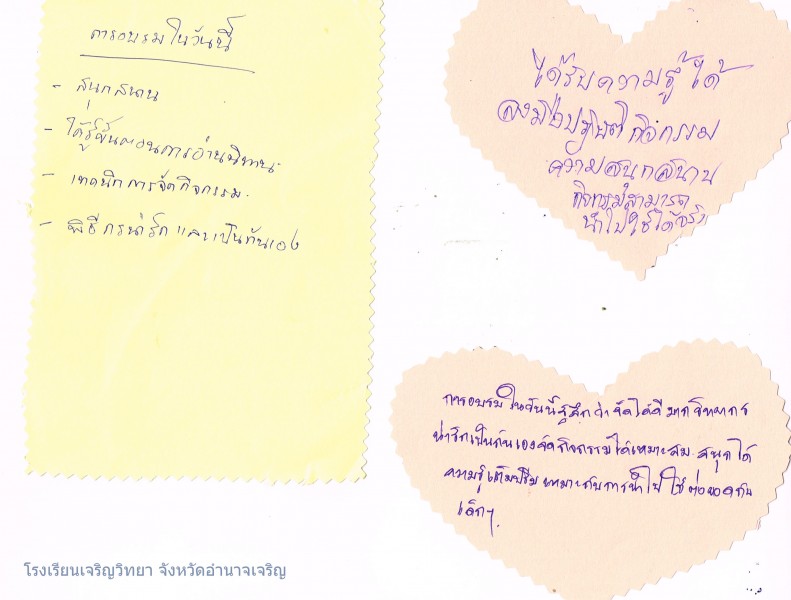 การอบรมในวันนี้
- สนุกสนาน
- ได้รู้ขั้นตอนการอ่านนิทาน
- เทคนิกการจัดกิจกรรม
- พิธีกรน่ารัก และเป็นกันเอง
ได้รับความรู้ ได้
ลงมือปฏิบัติกิจกรรม
ความสนุกสนาน
กิจกรรมสามารถ
นำไปใช้ได้จริง
การอบรมในวันนี้รู้สึกว่าจัดได้ดีมากวิทยากร
น่ารักเป็นกันเองจัดกิจกรรมได้เหมาะสม สนุกได้
ความรู้เต็มปรี่ม เหมาะกับการนำไปใช้ต่อยอดกับ
เด็กๆ
โรงเรียนเจริญวิทยา จังหวัดอำนาจเจริญ